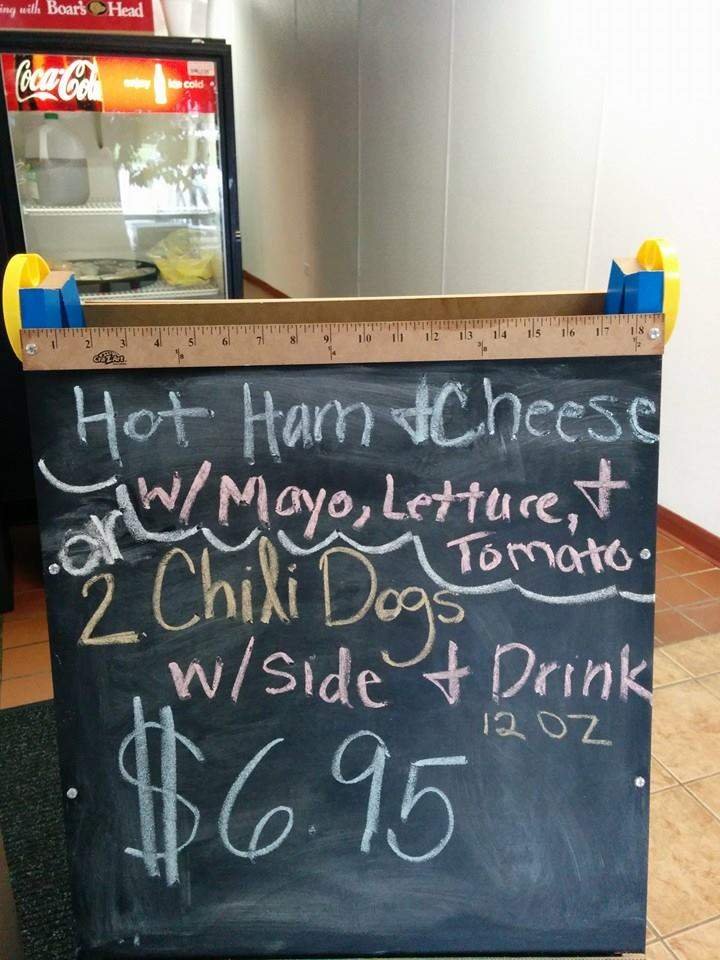 ing with Boar's Head
Coca-Cola enjoy ice cold
1 2 3 4 5 6 7 8 9 10 11 12 13 14 15 16 17 18
Hot Ham + Cheese
w/ Mayo, Lettuce, +
or Tomato
2 Chili Dogs
w/ Side + Drink
12 OZ
$6.95